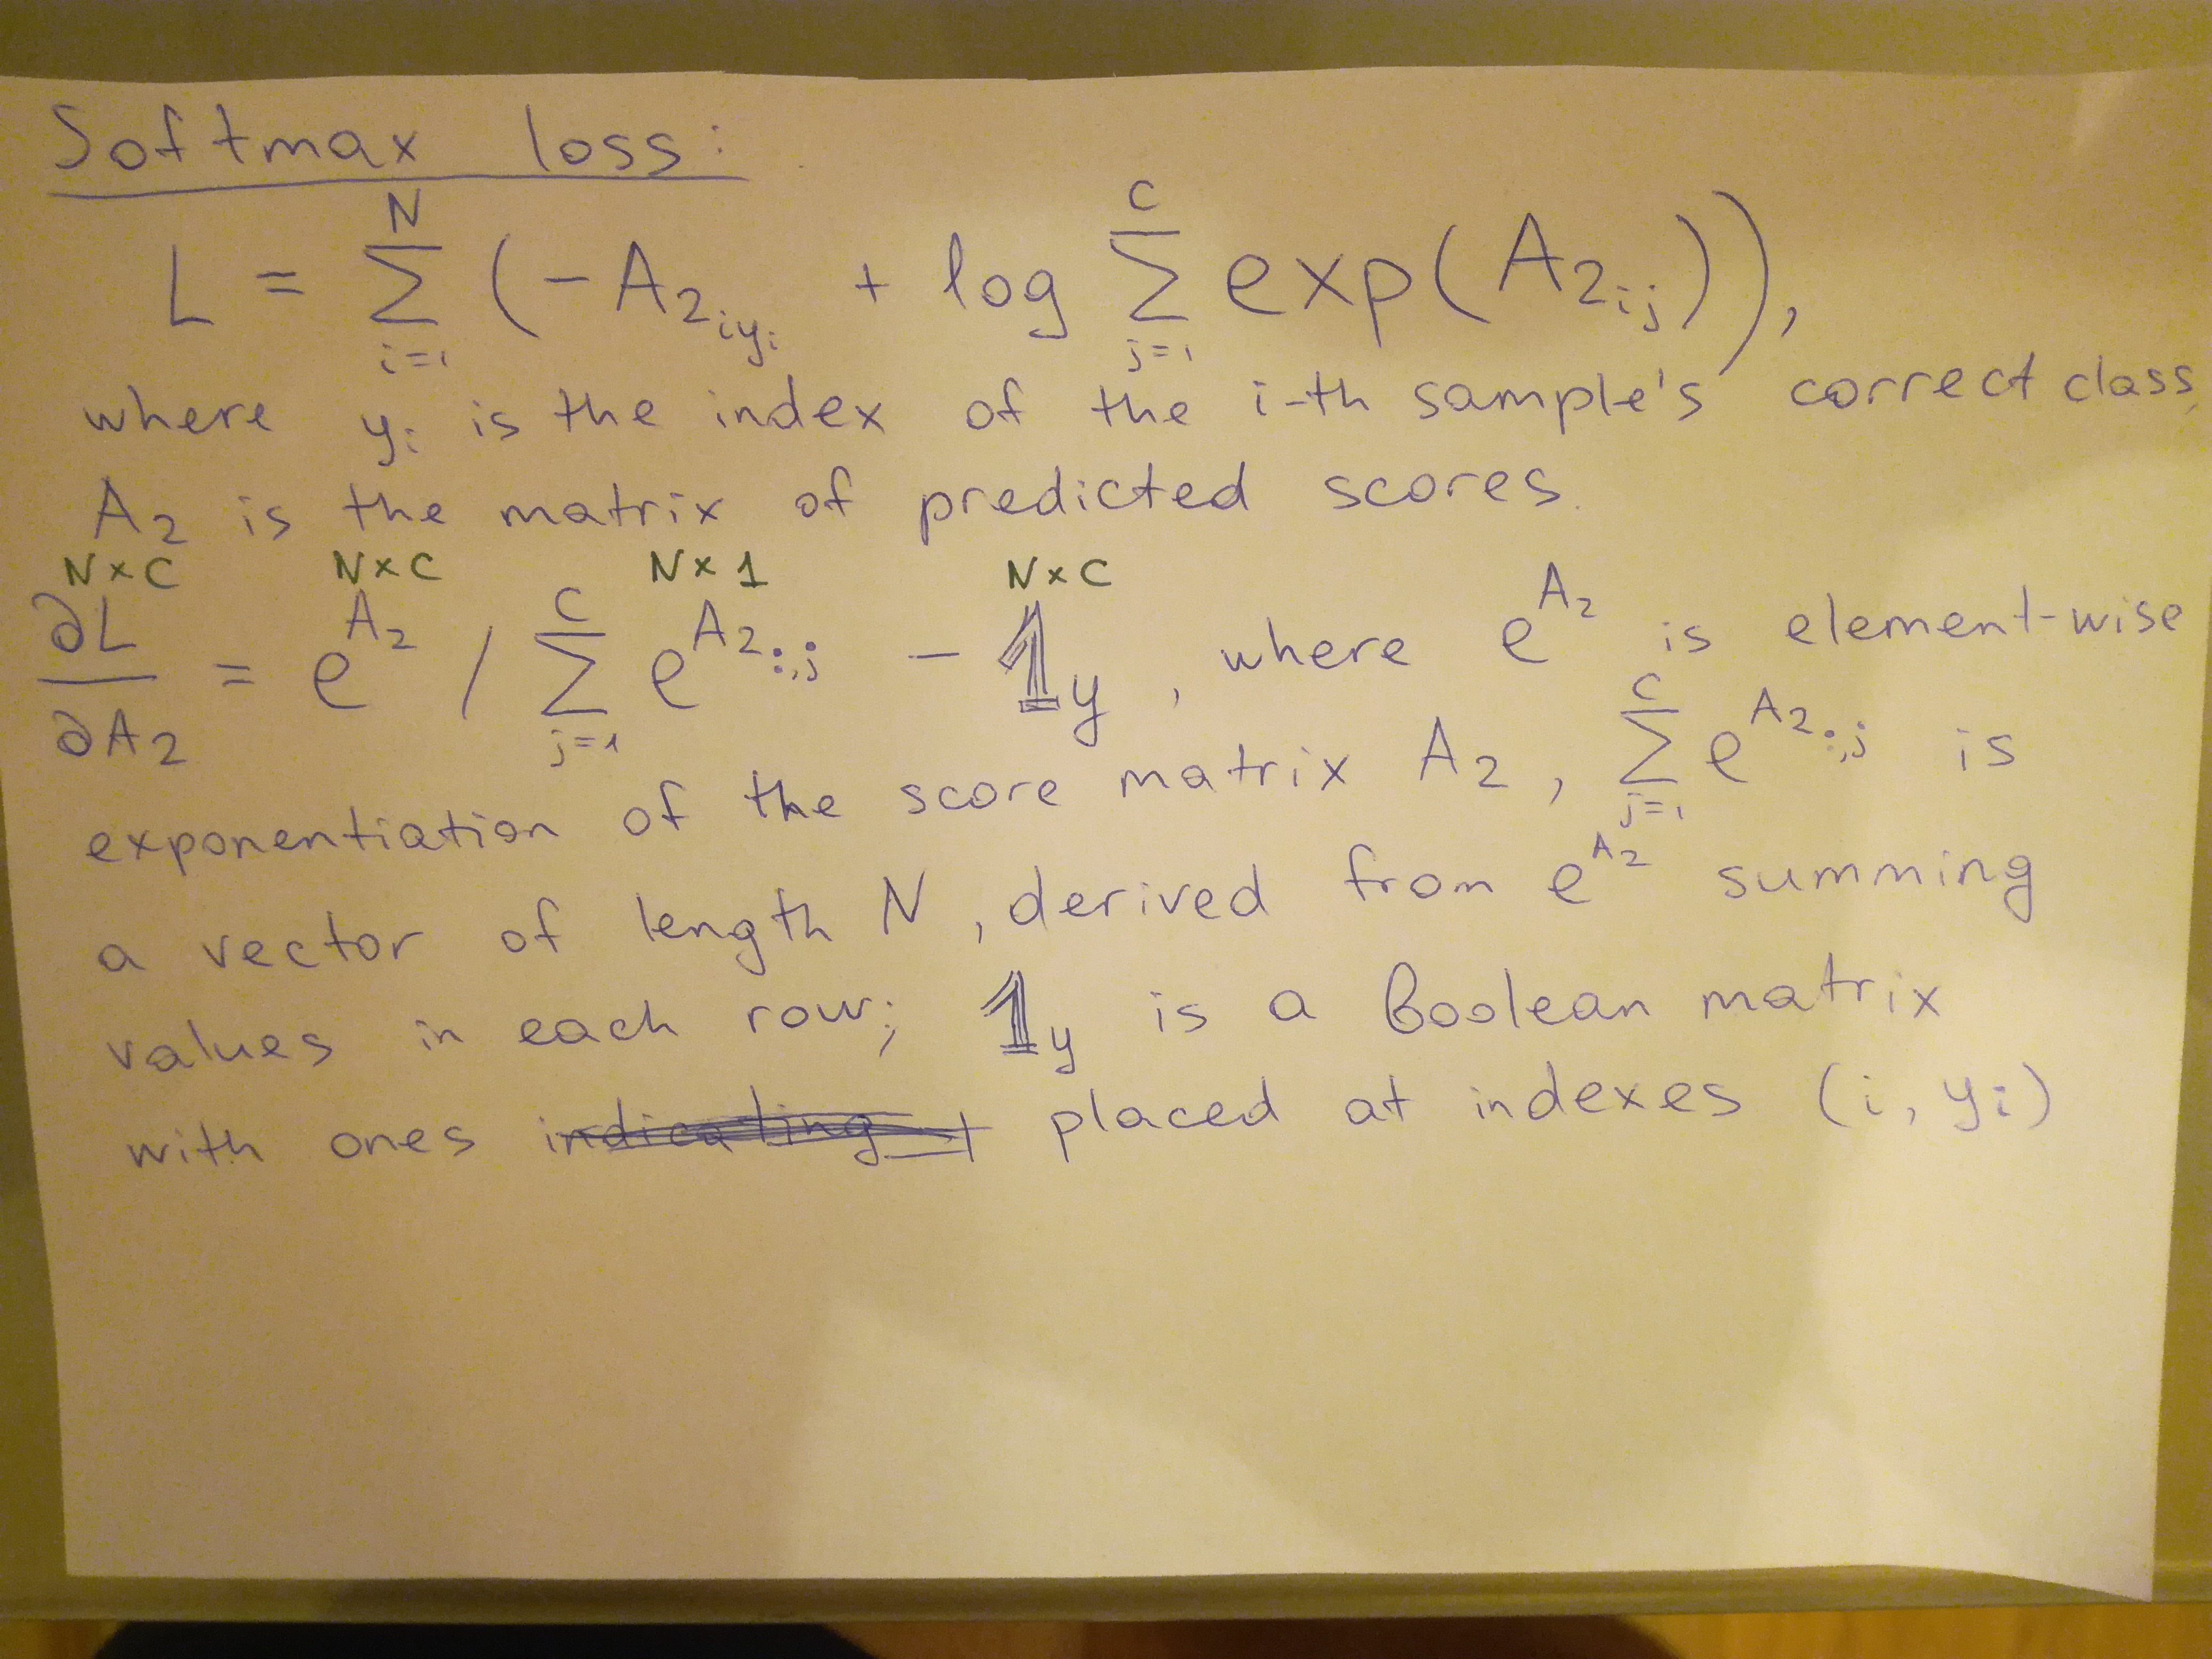 Softmax loss:
L = \sum_{i=1}^{N} (-A_{2_{iy_i}} + log \sum_{j=1}^{C} exp(A_{2_{ij}})),
where y_i is the index of the i-th sample's correct class,
A_2 is the matrix of predicted scores.
N×C N×C N×1 N×C
∂L/∂A_2 = e^{A_2} / \sum_{j=1}^{C} e^{A_{2_{:,j}}} - 𝟙_y, where e^{A_2} is element-wise
exponentiation of the score matrix A_2, \sum_{j=1}^{C} e^{A_{2_{:,j}}} is
a vector of length N, derived from e^{A_2} summing
values in each row; 𝟙_y is a Boolean matrix
with ones indicating placed at indexes (i, y_i)